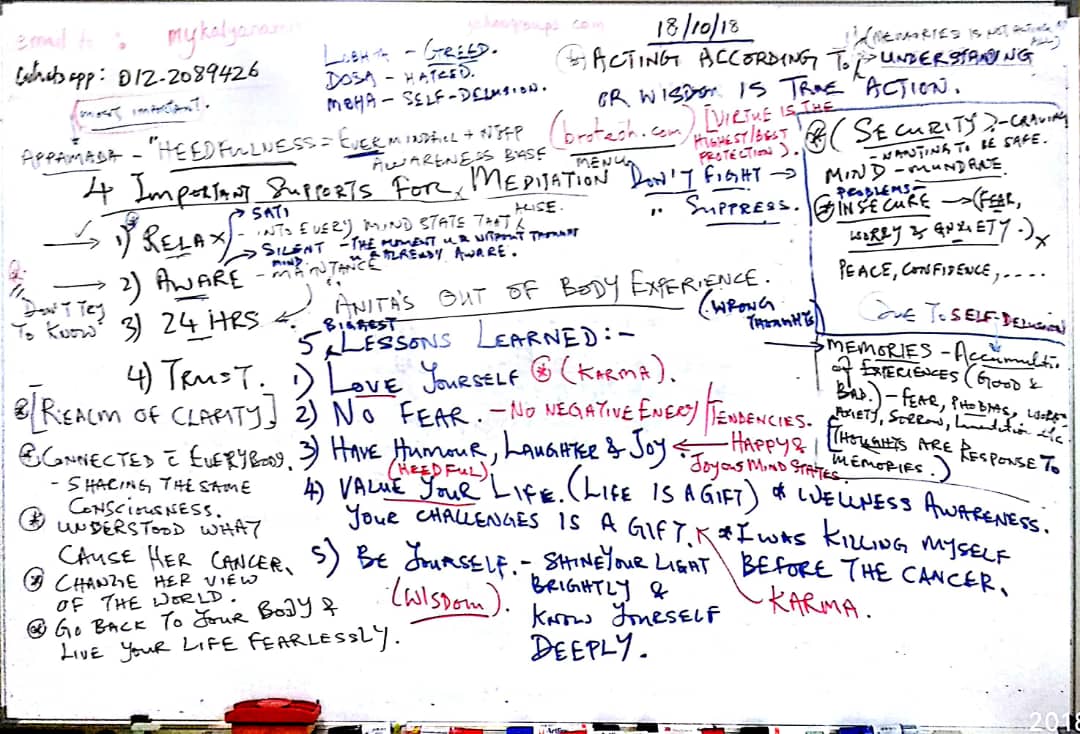 email to : mykalyanami yahoogroups.com
18/10/18
Whatsapp: 012-2089426
[most important.
LOBHA - GREED.
DOSA - HATRED.
MOHA - SELF-DELUSION.
(MEMORIES IS NOT ACTING AT ALL)
ACTING ACCORDING TO UNDERSTANDING
OR WISDOM IS TRUE ACTION.
APPAMADA - "HEEDFULLNESS = EVER MINDFULL +
AWARENESS BASE
(brotech.com)
MENU
[VIRTUE IS THE
HIGHEST/BEST
PROTECTION).
4 IMPORTANT SUPPORTS FOR MEDITATION
DON'T FIGHT →
" SUPPRESS.
→ 1) RELAX
SATI
- INTO EVERY MIND STATE THAT
ARISE.
SILENT MIND - THE MOMENT U R WITHOUT THOUGHT
U R ALREADY AWARE.
→ 2) AWARE - MAINTANCE
Don't Try
To Know
3) 24 HRS ←
4) TRUST.
(SECURITY) - CRAVING
- WANTING TO BE SAFE.
MIND - MUNDANE
PROBLEMS -
INSECURE → (FEAR,
WORRY & ANXIETY.) x
PEACE, CONFIDENCE, ....
DUE TO SELF-DELUSION
ANITA'S OUT OF BODY EXPERIENCE.
(WRONG
THOUGHTS)
5 BIGGEST LESSONS LEARNED:-
1) LOVE YOURSELF (KARMA).
2) NO FEAR. - NO NEGATIVE ENERGY/TENDENCIES.
3) HAVE HUMOUR, LAUGHTER & JOY ← HAPPY &
JOYOUS MIND STATES
(HEEDFUL)
4) VALUE YOUR LIFE. (LIFE IS A GIFT) * WELLNESS AWARENESS.
YOUR CHALLENGES IS A GIFT. * I WAS KILLING MYSELF
BEFORE THE CANCER.
KARMA.
5) BE YOURSELF. - SHINE YOUR LIGHT
BRIGHTLY &
KNOW YOURSELF
DEEPLY.
(WISDOM).
MEMORIES - Accumulatio
of EXPERIENCES (GOOD &
BAD.) - FEAR, PHOBIAS, WORRY
ANXIETY, SORROW, etc.
[THOUGHTS ARE RESPONSE TO
MEMORIES.)
[REALM OF CLARITY]
CONNECTED c̄ EVERYBODY.
- SHARING THE SAME
CONSCIOUSNESS.
UNDERSTOOD WHAT
CAUSE HER CANCER.
CHANGE HER VIEW
OF THE WORLD.
GO BACK TO YOUR BODY &
LIVE YOUR LIFE FEARLESSLY.
2018